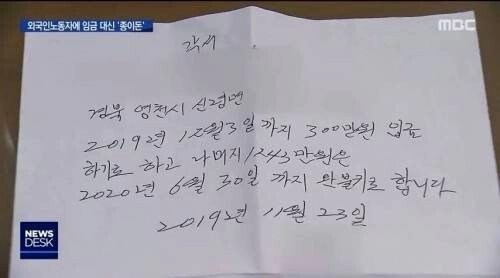 외국인노동자에 임금 대신 '종이돈'
MBC
각서
경북 영천시 신령면
2019년 12월3일 까지 300만원 입료
하기로 하고 나머지 1243만원은
2020년 6월 30일 까지 완불키로 합니다
2019년 11월 23일
NEWS
DESK